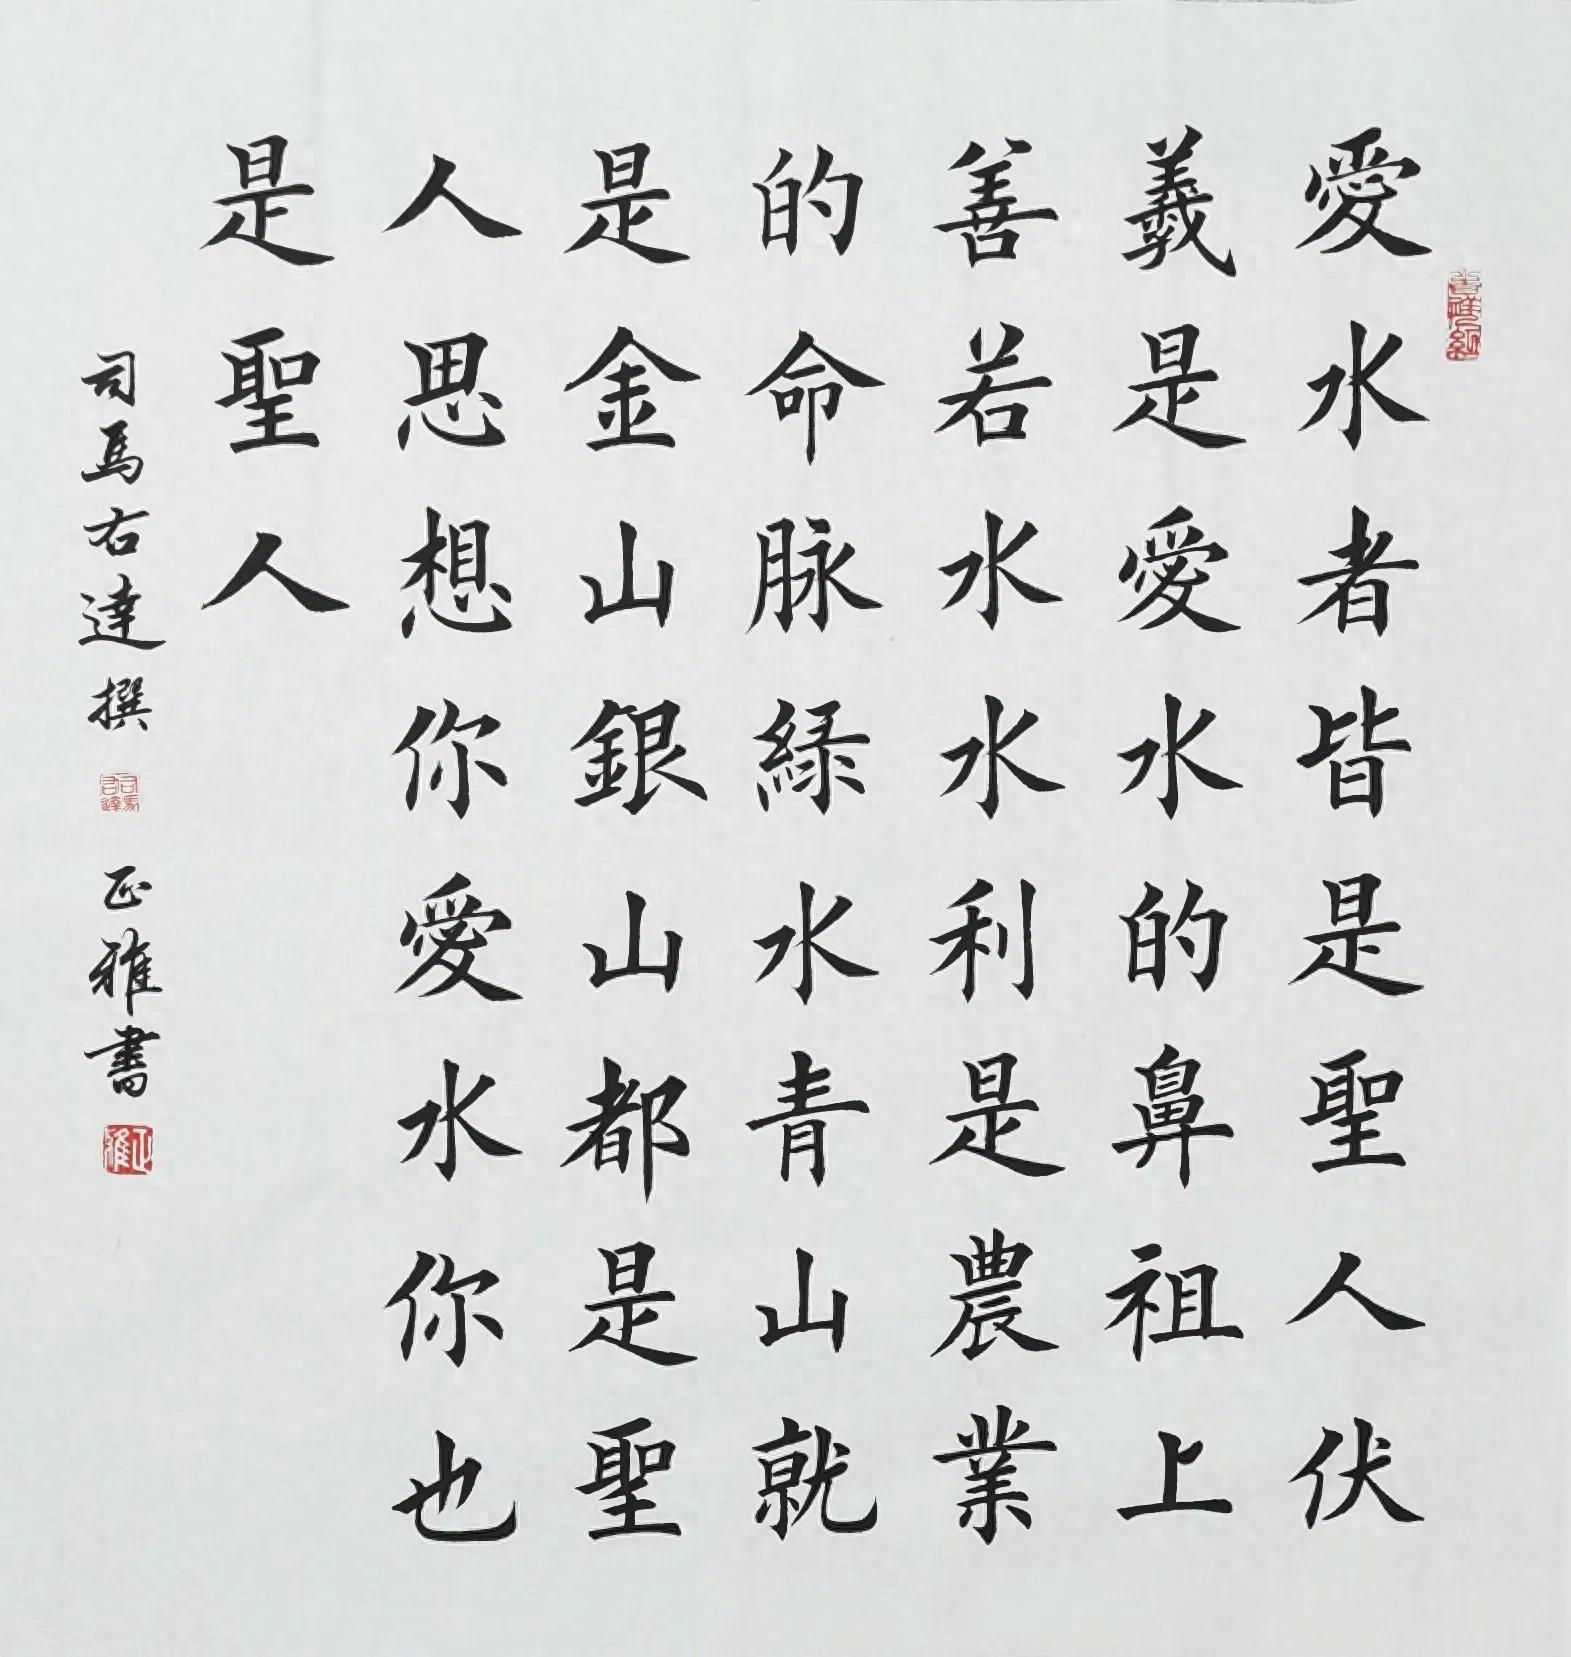 愛水者皆是聖人伏
羲是愛水的鼻祖上
善若水水利是農業
的命脉緑水青山就
是金山銀山都是聖
人思想你愛水你也
是聖人
司馬右達撰
司馬右達
正雅書
正雅